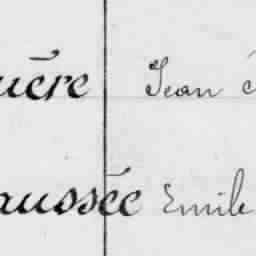 uère Jean
aussée Emile